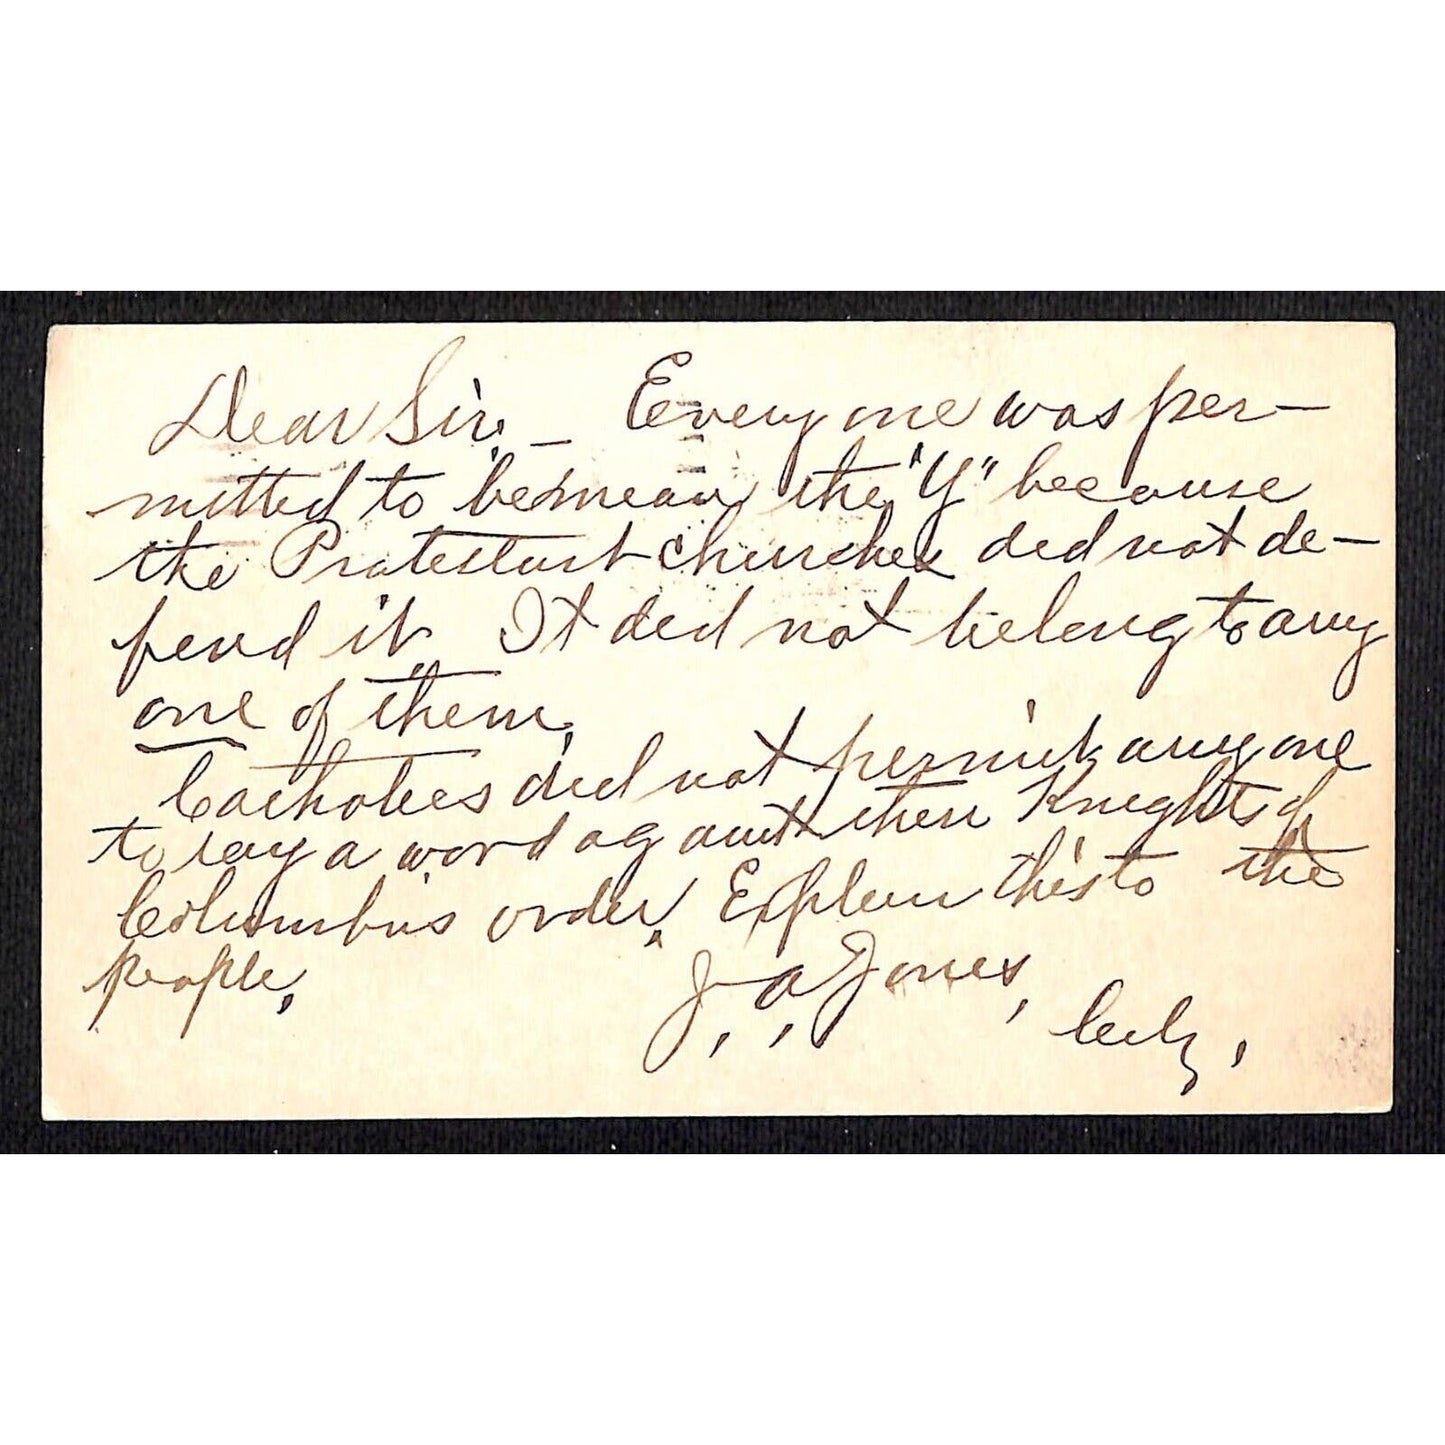 Dear Sir. – Everyone was per-
mitted to bemean the "Y" because
the Protestant churches did not de-
fend it. It did not belong to any
one of them.
Catholics did not permit anyone
to say a word against their Knights of
Columbus order. Explain this to the
people.
J. A. Jones,
City.